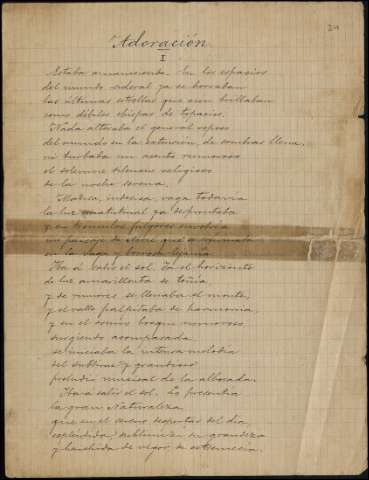 24
Adoración
I
Estaba amaneciendo. En los espacios
del mundo sideral ya se borraban
las últimas estrellas que aún brillaban
como débiles chispas de topacios.
Nada alteraba el general reposo
del mundo en la extensión, de sombras llena,
ni turbaba un acento rumoroso
el solemne silencio religioso
de la noche serena.
indecisa, vaga todavía
la luz matutinal ya despuntaba
y en trémulos fulgores envolvía
un paisaje de que
en la vaga y borrosa lejanía
Iba á salir el sol. Ya el horizonte
de luz amarillenta se teñía,
y de rumores se llenaba el monte,
y el valle palpitaba de harmonía,
y en el bosque rumoroso,
surgiendo acompasada
se iniciaba la intensa melodía
del sublime y grandioso
preludio musical de la alborada.
Iba á salir el sol. Lo presentía
la gran Naturaleza
que en el sereno despertar del día
espléndida sublimiza su grandeza
y henchida de vigor se estremecía.